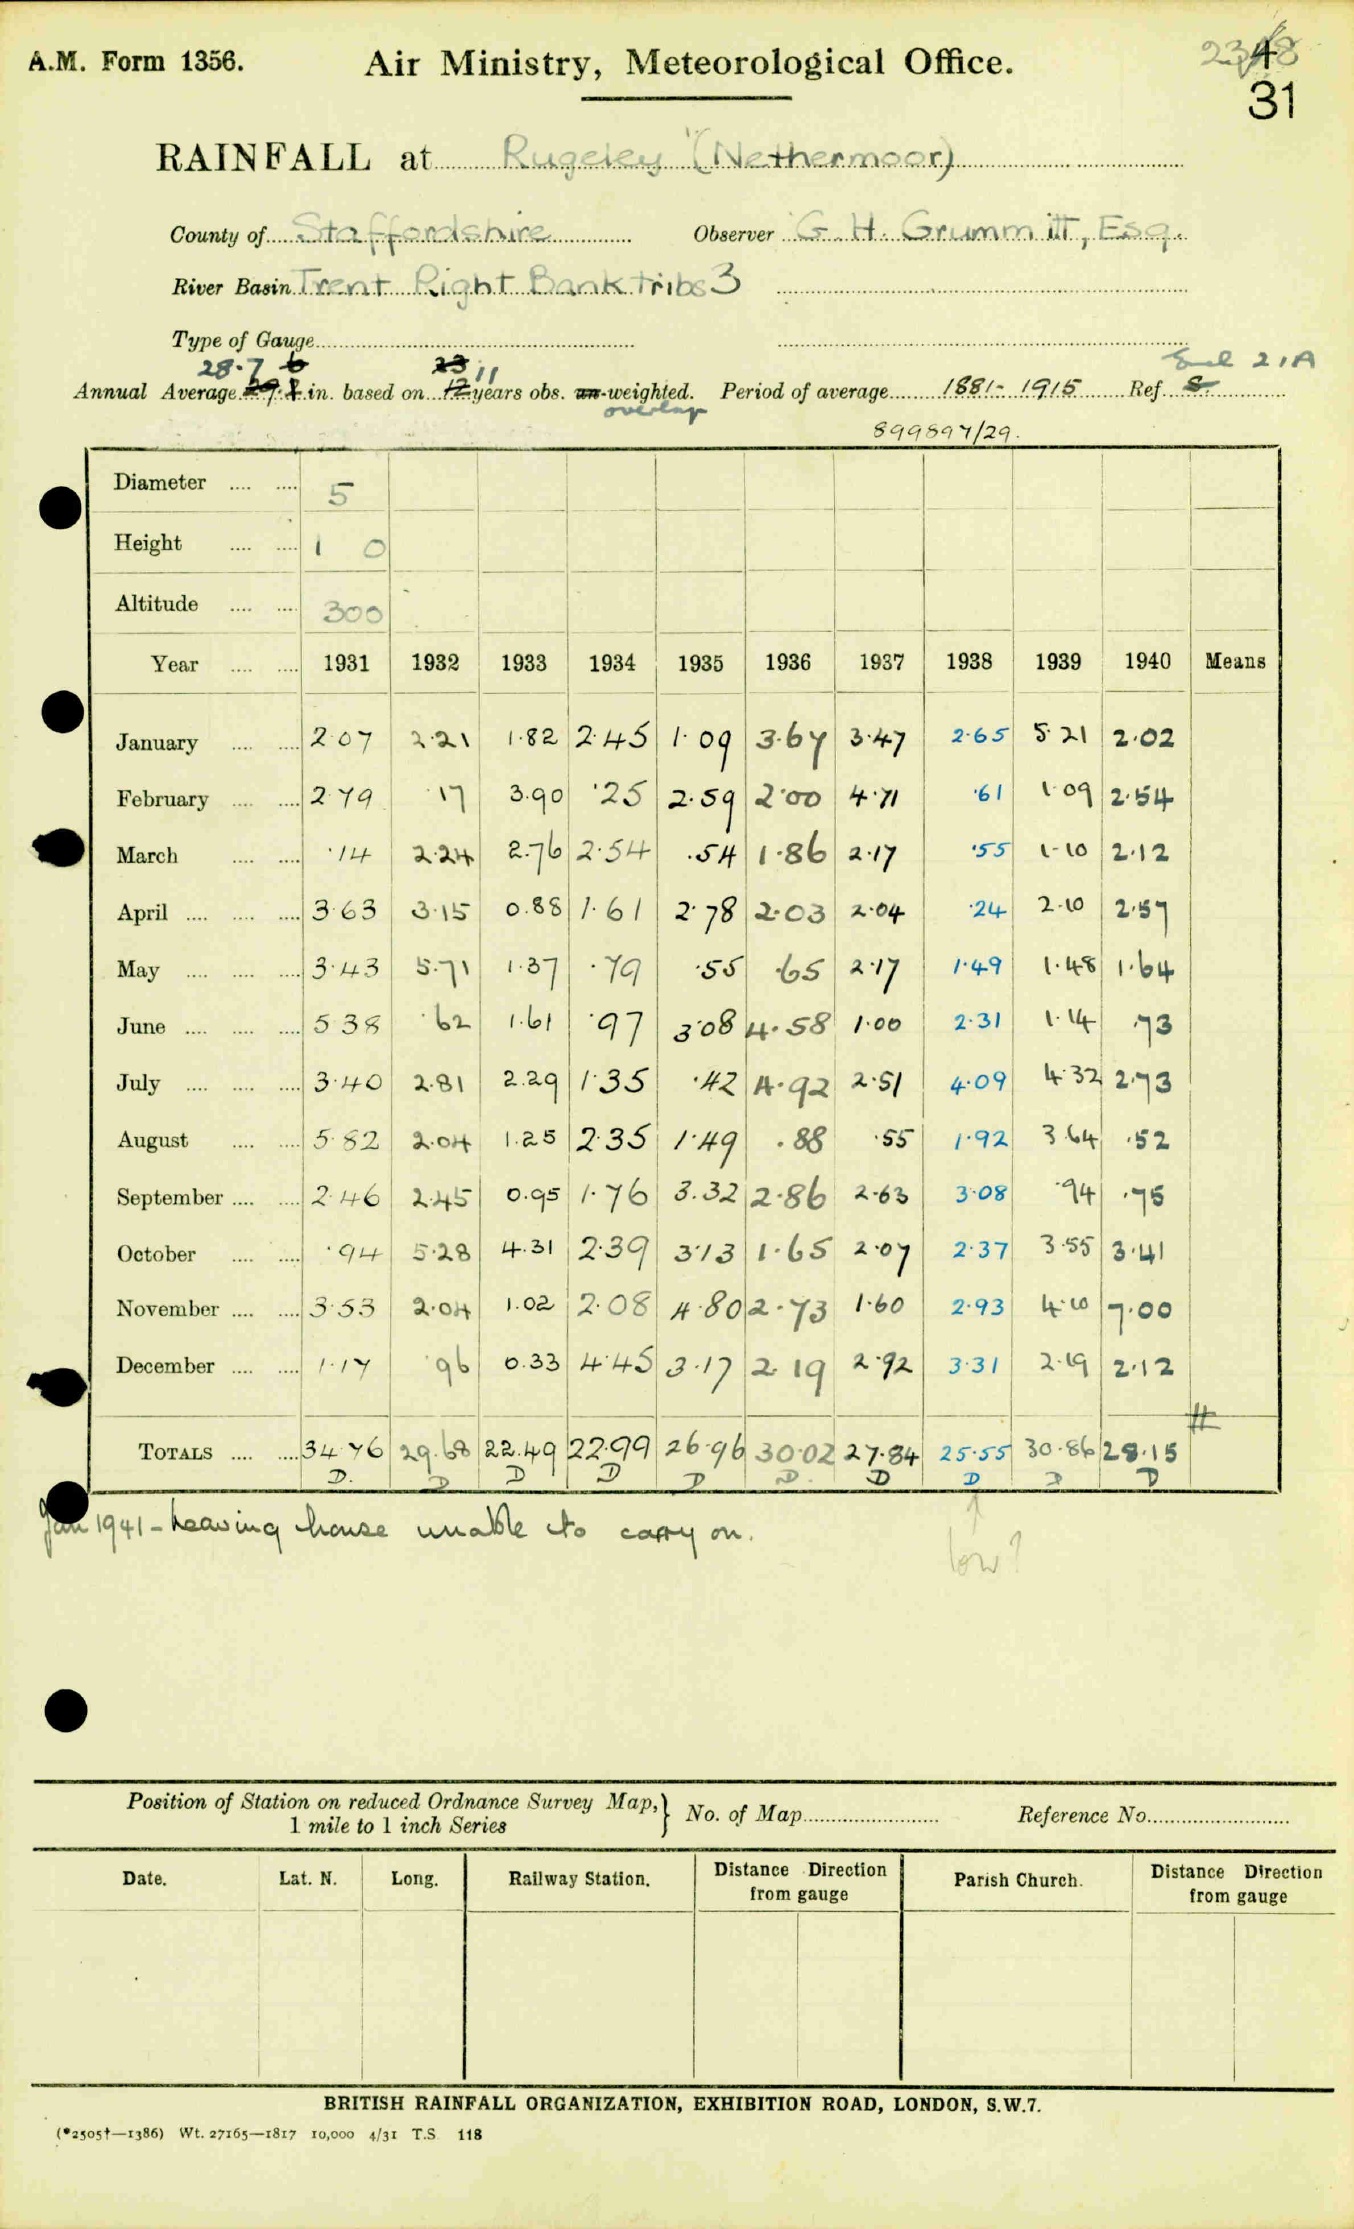 A.M. Form 1356.
Air Ministry, Meteorological Office.
31
RAINFALL at Rugeley (Nethermoor)
County of Staffordshire Observer G. H. Grummitt, Esq.
River Basin Trent Right Bank Tribs 3
Type of Gauge
28.7 11 21A
Annual Average in. based on 12 years obs. un-weighted. Period of average 1881-1915 Ref. S.
overlap
899897/29.
Diameter 5
Height 1 0
Altitude 300
Year 1931 1932 1933 1934 1935 1936 1937 1938 1939 1940 Means
January 2.07 2.21 1.82 2.45 1.09 3.67 3.47 2.65 5.21 2.02
February 2.79 .17 3.90 .25 2.59 2.00 4.71 .61 1.09 2.54
March .14 2.24 2.76 2.54 .54 1.86 2.17 .55 1.10 2.12
April 3.63 3.15 0.88 1.61 2.78 2.03 2.04 .24 2.10 2.57
May 3.43 5.71 1.37 .79 .55 .65 2.17 1.49 1.48 1.64
June 5.38 .62 1.61 .97 3.08 4.58 1.00 2.31 1.14 .73
July 3.40 2.81 2.29 1.35 .42 4.92 2.51 4.09 4.32 2.73
August 5.82 2.04 1.25 2.35 1.49 .88 .55 1.92 3.64 .52
September 2.46 2.45 0.95 1.76 3.32 2.86 2.63 3.08 .94 .75
October .94 5.28 4.31 2.39 3.13 1.65 2.07 2.37 3.55 3.41
November 3.53 2.04 1.02 2.08 4.80 2.73 1.60 2.93 4.10 7.00
December 1.17 .96 0.33 4.45 3.17 2.19 2.92 3.31 2.19 2.12
TOTALS 34.76 29.68 22.49 22.99 26.96 30.02 27.84 25.55 30.86 28.15
D. D D D D D. D D D D
Jan 1941 - Leaving house unable to carry on.
low?
Position of Station on reduced Ordnance Survey Map,
1 mile to 1 inch Series
No. of Map Reference No.
Date. Lat. N. Long. Railway Station. Distance Direction from gauge Parish Church. Distance Direction from gauge
BRITISH RAINFALL ORGANIZATION, EXHIBITION ROAD, LONDON, S.W.7.
(*2505†—1386) Wt. 27165—1817 10,000 4/31 T.S 118